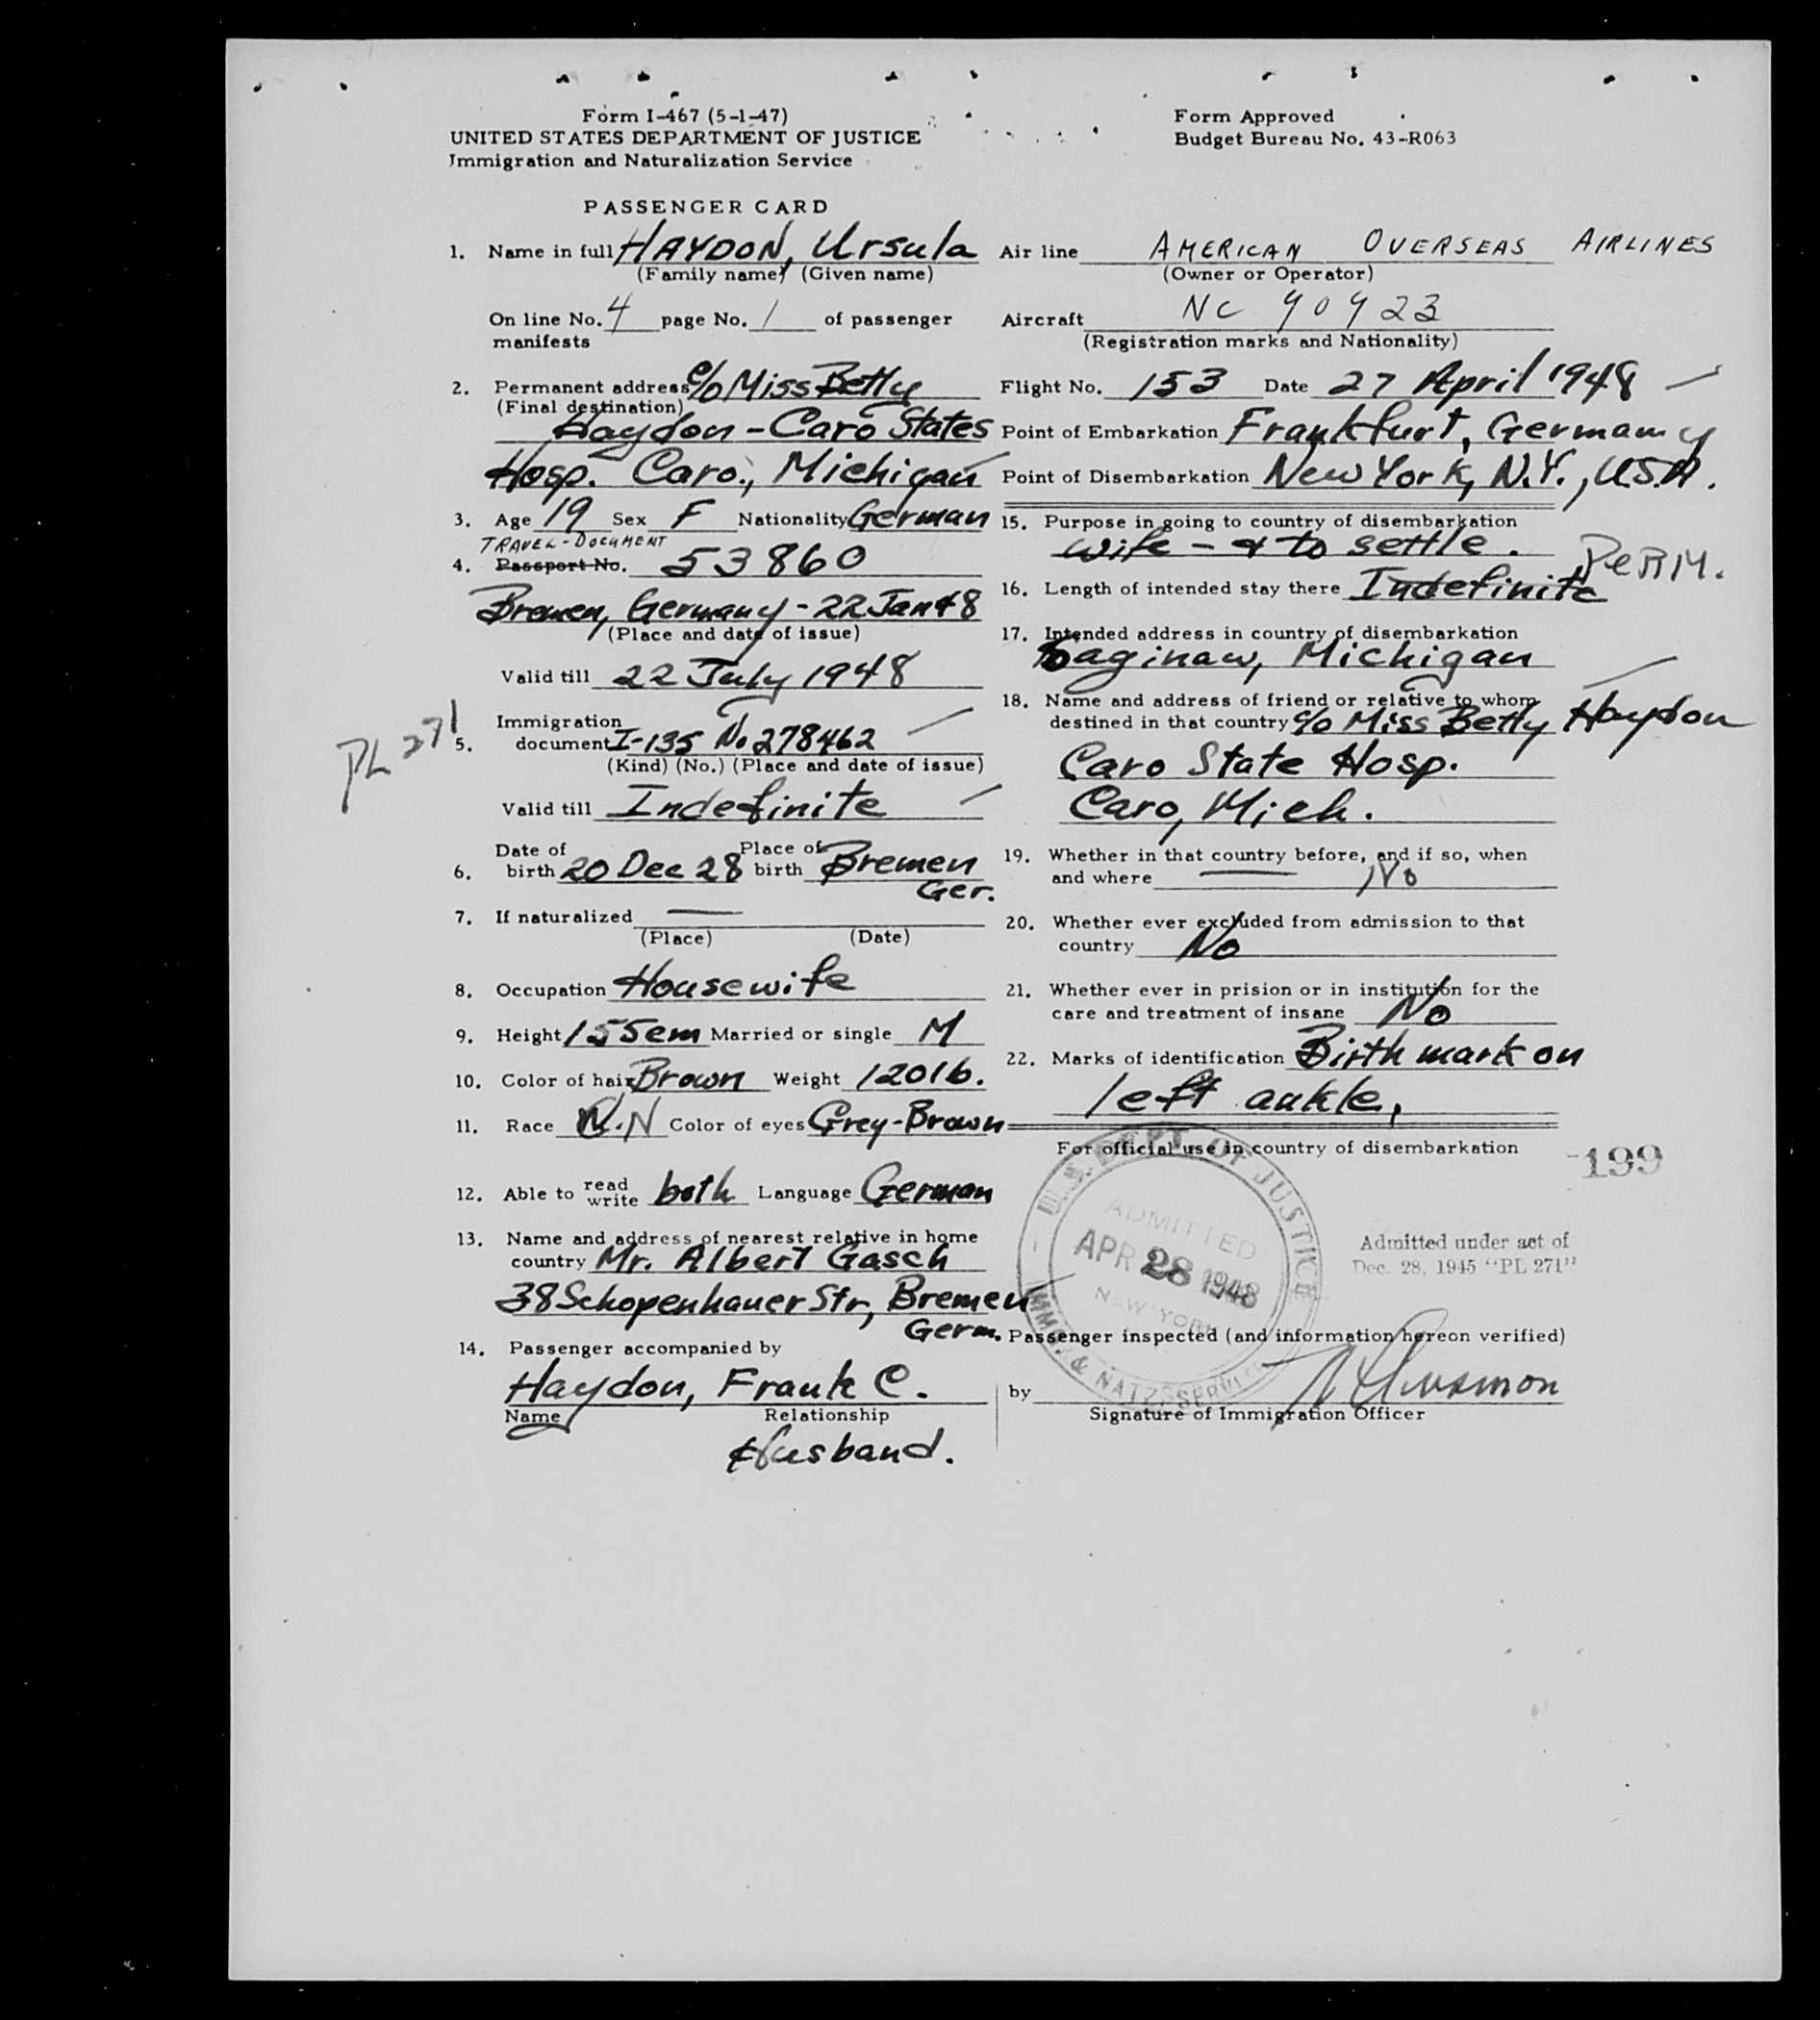 Form I-467 (5-1-47)
UNITED STATES DEPARTMENT OF JUSTICE
Immigration and Naturalization Service
Form Approved
Budget Bureau No. 43-R063
PASSENGER CARD
1. Name in full HAYDON, Ursula
(Family name) (Given name)
On line No. 4 page No. 1 of passenger
manifests
2. Permanent address c/o Miss Betty
(Final destination)
Haydon - Caro States
Hosp. Caro., Michigan
3. Age 19 Sex F Nationality German
TRAVEL-DOCUMENT
4. Passport No. 53860
Bremen, Germany - 22 Jan 48
(Place and date of issue)
Valid till 22 July 1948
PL 271
5. Immigration
document I-135 No 278462
(Kind) (No.) (Place and date of issue)
Valid till Indefinite
6. Date of birth 20 Dec 28 Place of birth Bremen
Ger.
7. If naturalized —
(Place) (Date)
8. Occupation Housewife
9. Height 155cm Married or single M
10. Color of hair Brown Weight 120 lb.
11. Race N Color of eyes Grey-Brown
12. Able to read write both Language German
13. Name and address of nearest relative in home
country Mr. Albert Gasch
38 Schopenhauer Str, Bremen
Germ.
14. Passenger accompanied by
Haydon, Frank C.
Name Relationship
Husband.
Air line AMERICAN OVERSEAS AIRLINES
(Owner or Operator)
Aircraft NC 90923
(Registration marks and Nationality)
Flight No. 153 Date 27 April 1948
Point of Embarkation Frankfurt, Germany
Point of Disembarkation New York, N.Y., U.S.A.
15. Purpose in going to country of disembarkation
wife - & to settle.
PERM.
16. Length of intended stay there Indefinite
17. Intended address in country of disembarkation
Saginaw, Michigan
18. Name and address of friend or relative to whom
destined in that country c/o Miss Betty Haydon
Caro State Hosp.
Caro, Mich.
19. Whether in that country before, and if so, when
and where — No
20. Whether ever excluded from admission to that
country No
21. Whether ever in prision or in institution for the
care and treatment of insane No
22. Marks of identification Birth mark on
left ankle,
For official use in country of disembarkation
199
U.S. DEPT. OF JUSTICE
ADMITTED
APR 28 1948
NEW YORK
IMM. & NATZ. SERVICE
Admitted under act of
Dec. 28, 1945 "PL 271"
Passenger inspected (and information hereon verified)
by
Signature of Immigration Officer